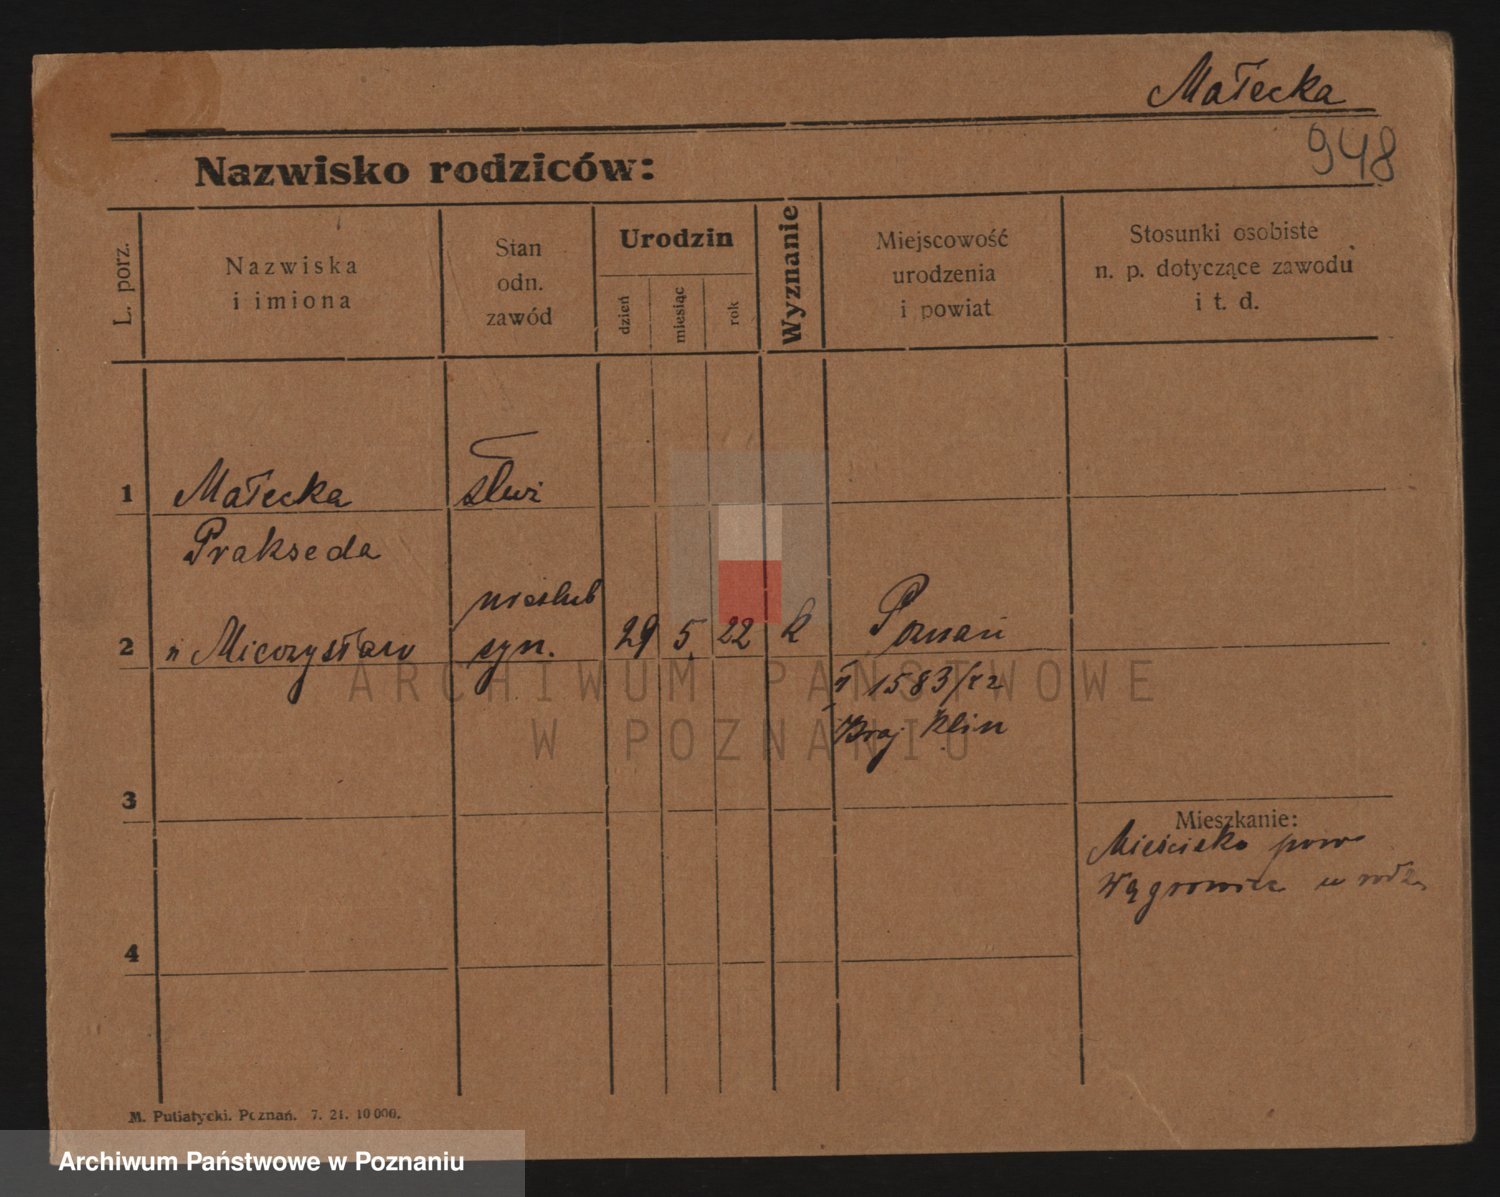 Małecka
948
Nazwisko rodziców:
L. porz.
Nazwiska
i imiona
Stan
odn.
zawód
Urodzin
dzień
miesiąc
rok
Wyznanie
Miejscowość
urodzenia
i powiat
Stosunki osobiste
n. p. dotyczące zawodu
i t. d.
1 Małecka
Prakseda
2 Mieczysław
nieślub
syn. 29 5 22 k Poznań
1583/22
Kraj Klin
3
Mieszkanie:
Mieścisko pow
Wągrowiec u rodz.
4
M. Putiatycki. Poznań. 7. 21. 10 000.
ARCHIWUM PAŃSTWOWE
W POZNANIU
Archiwum Państwowe w Poznaniu